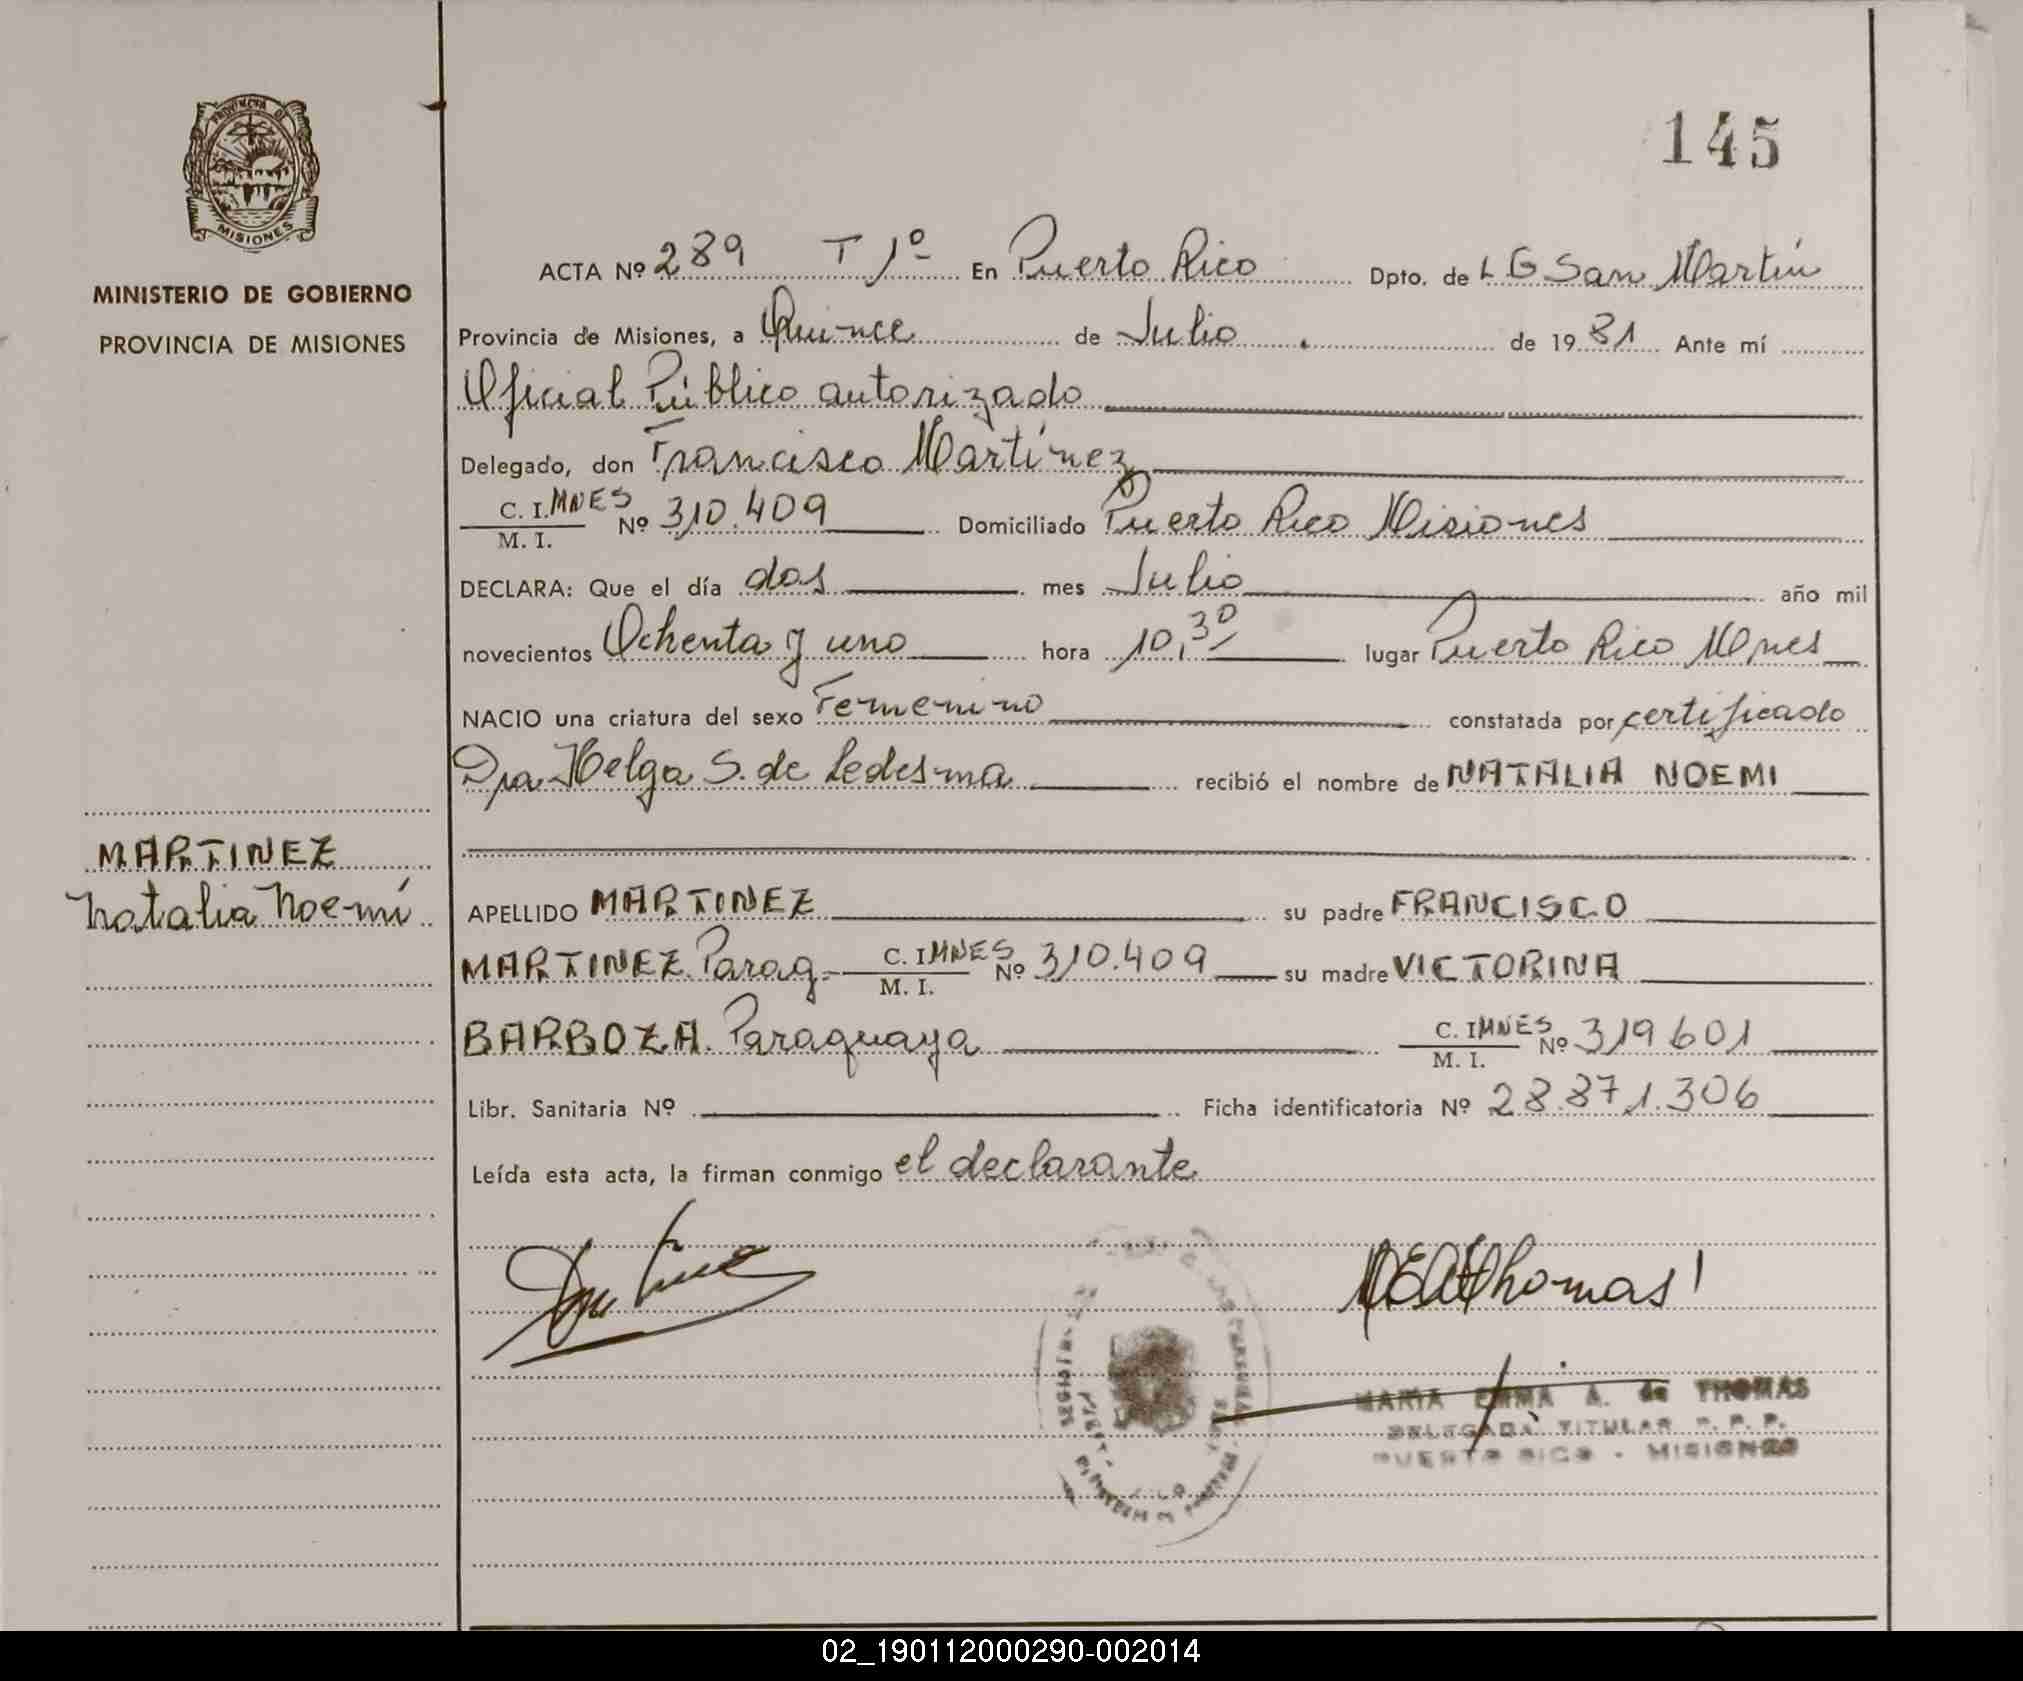 PROVINCIA DE
MISIONES
MINISTERIO DE GOBIERNO
PROVINCIA DE MISIONES
MARTINEZ
Natalia Noemí
145
ACTA Nº 289 T 1º En Puerto Rico Dpto. de L G San Martín
Provincia de Misiones, a Quince de Julio de 1981 Ante mí
Oficial Público autorizado
Delegado, don Francisco Martínez
C. I. MNES Nº 310.409 Domiciliado Puerto Rico Misiones
M. I.
DECLARA: Que el día dos mes Julio año mil
novecientos Ochenta y uno hora 10,30 lugar Puerto Rico Mnes
NACIO una criatura del sexo Femenino constatada por certificado
Dra Helga S. de Ledesma recibió el nombre de NATALIA NOEMI
APELLIDO MARTINEZ su padre FRANCISCO
MARTINEZ Parag- C. I MNES Nº 310.409 su madre VICTORINA
M. I.
BARBOZA. Paraguaya C. I MNES Nº 319601
M. I.
Libr. Sanitaria Nº Ficha identificatoria Nº 28.871.306
Leída esta acta, la firman conmigo el declarante
MEAdThomas
MARIA EMMA A. de THOMAS
DELEGADA TITULAR R. P. P.
PUERTO RICO - MISIONES
02_190112000290-002014